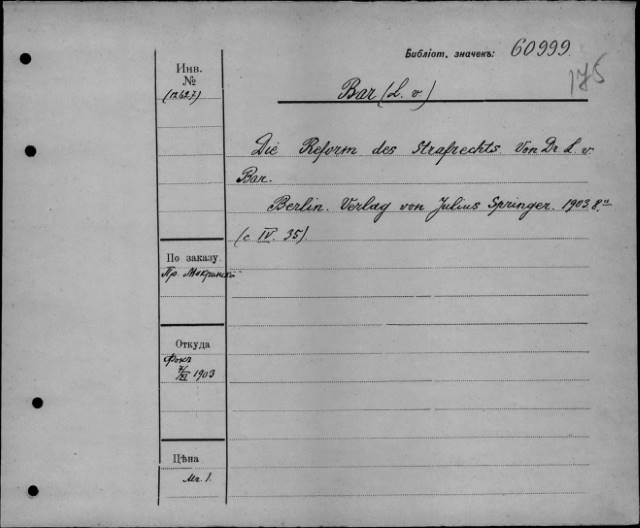 Библіот. значекъ: 60999.
175
Инв.
№
(12627)
Bar (L. v)
Die Reform des Strafrechts Von Dr L. v.
Bar.
Berlin. Verlag von Julius Springer. 1903 8.º
(c IV. 35)
По заказу.
Пр.
Откуда
Фокъ
1903
Цѣна
Mr. 1.